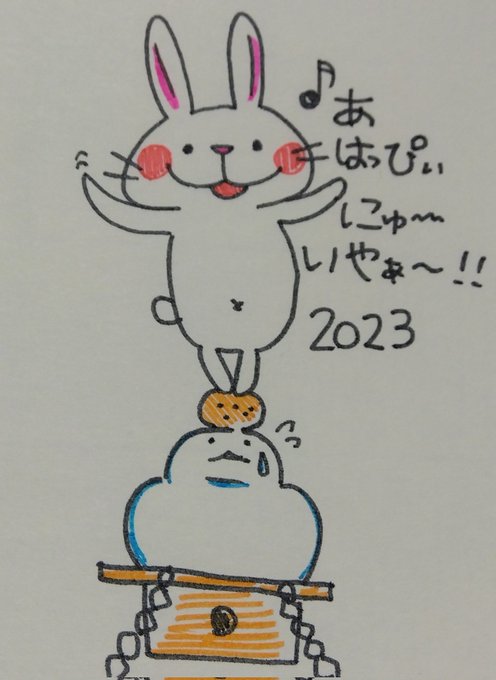 ♪あ
はっぴぃ
にゅ〜
いやぁ〜!!
2023